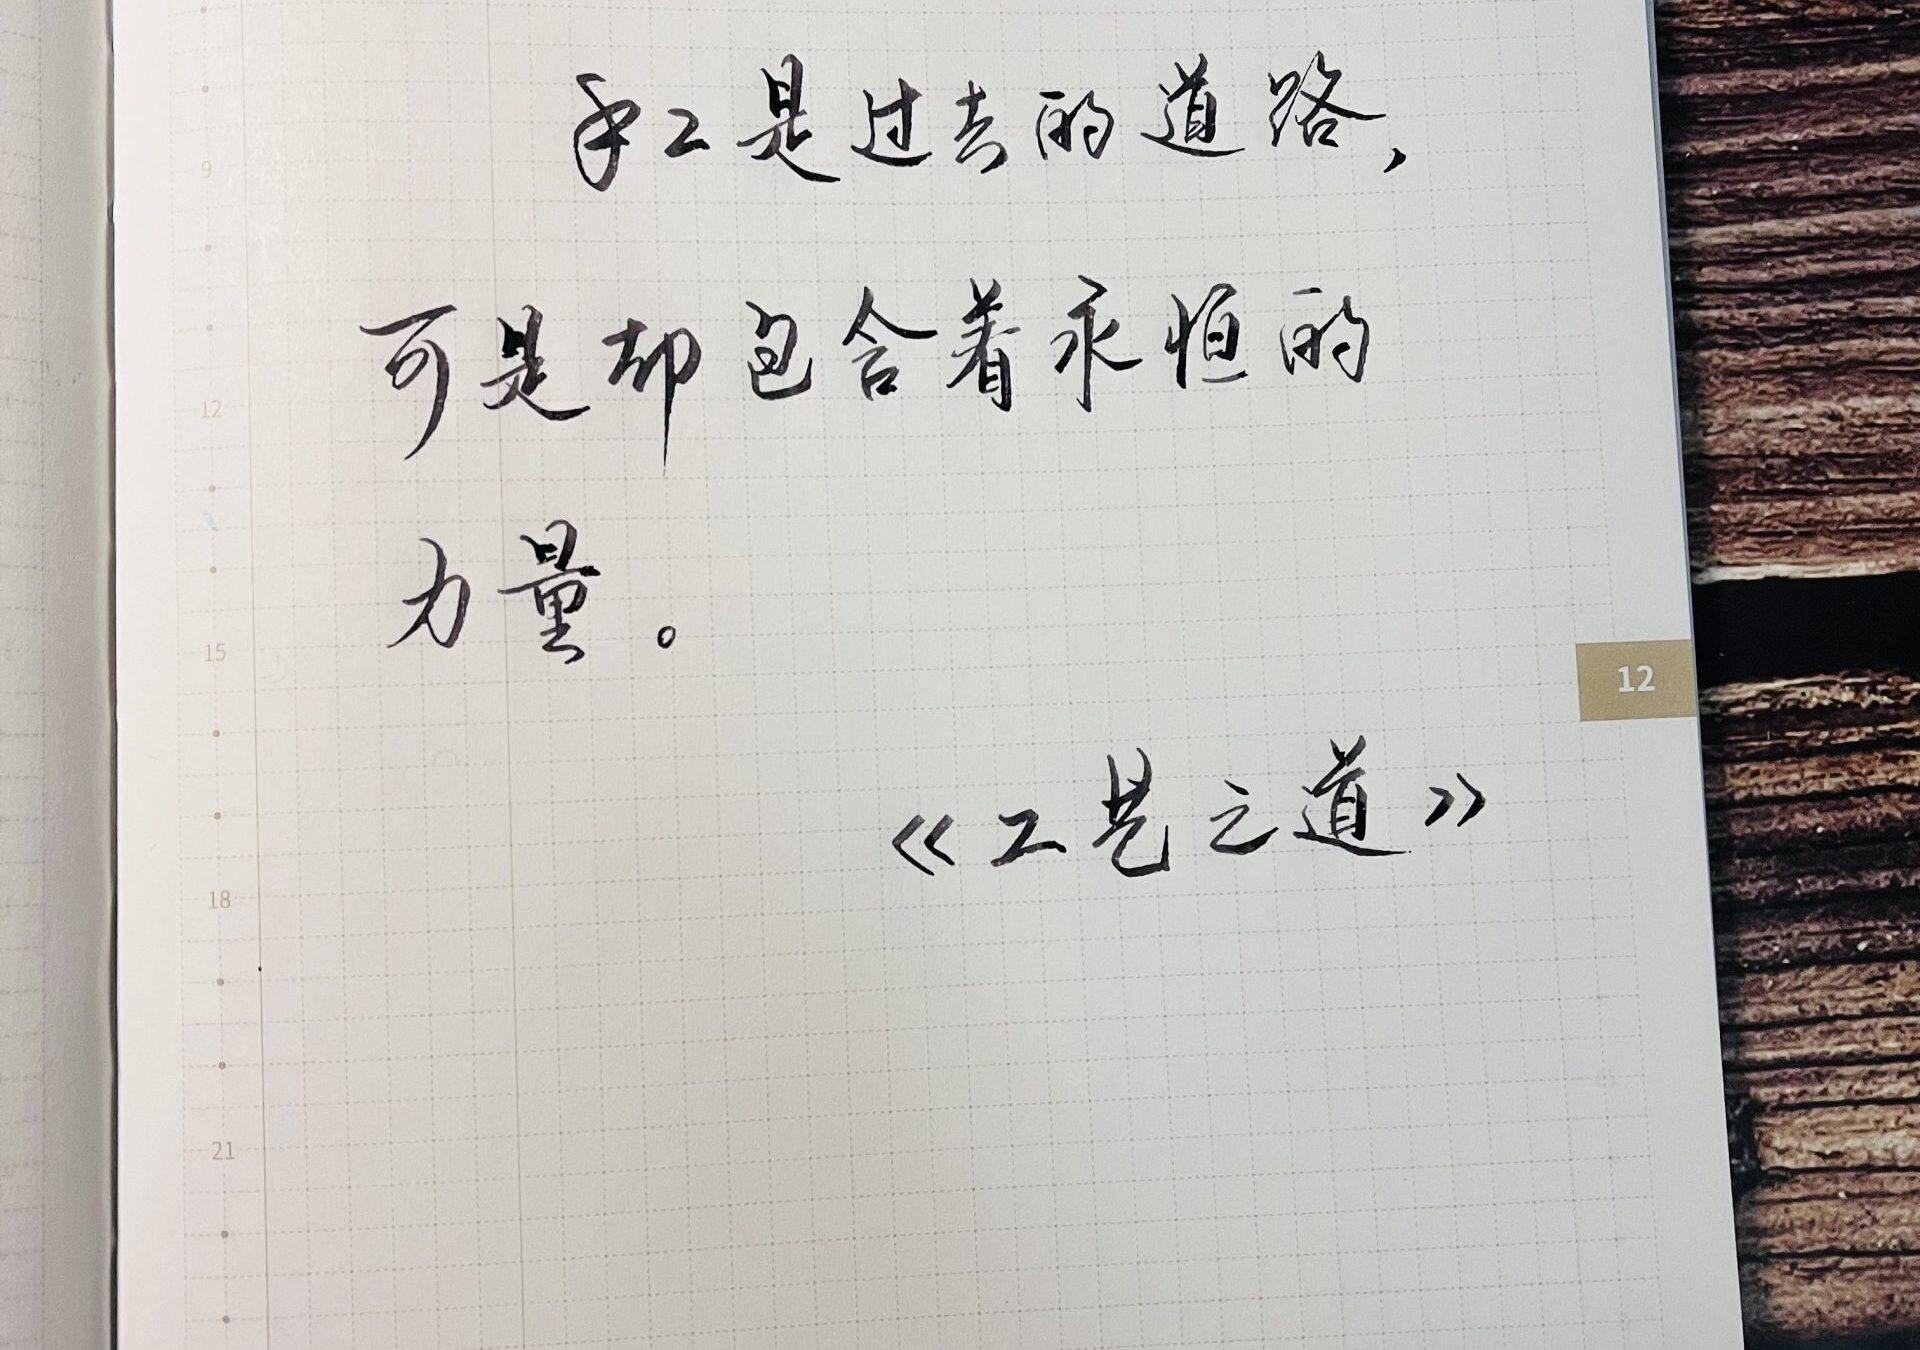 手工是过去的道路，
9
可是却包含着永恒的
12
力量。
15
12
《工艺之道》
18
21